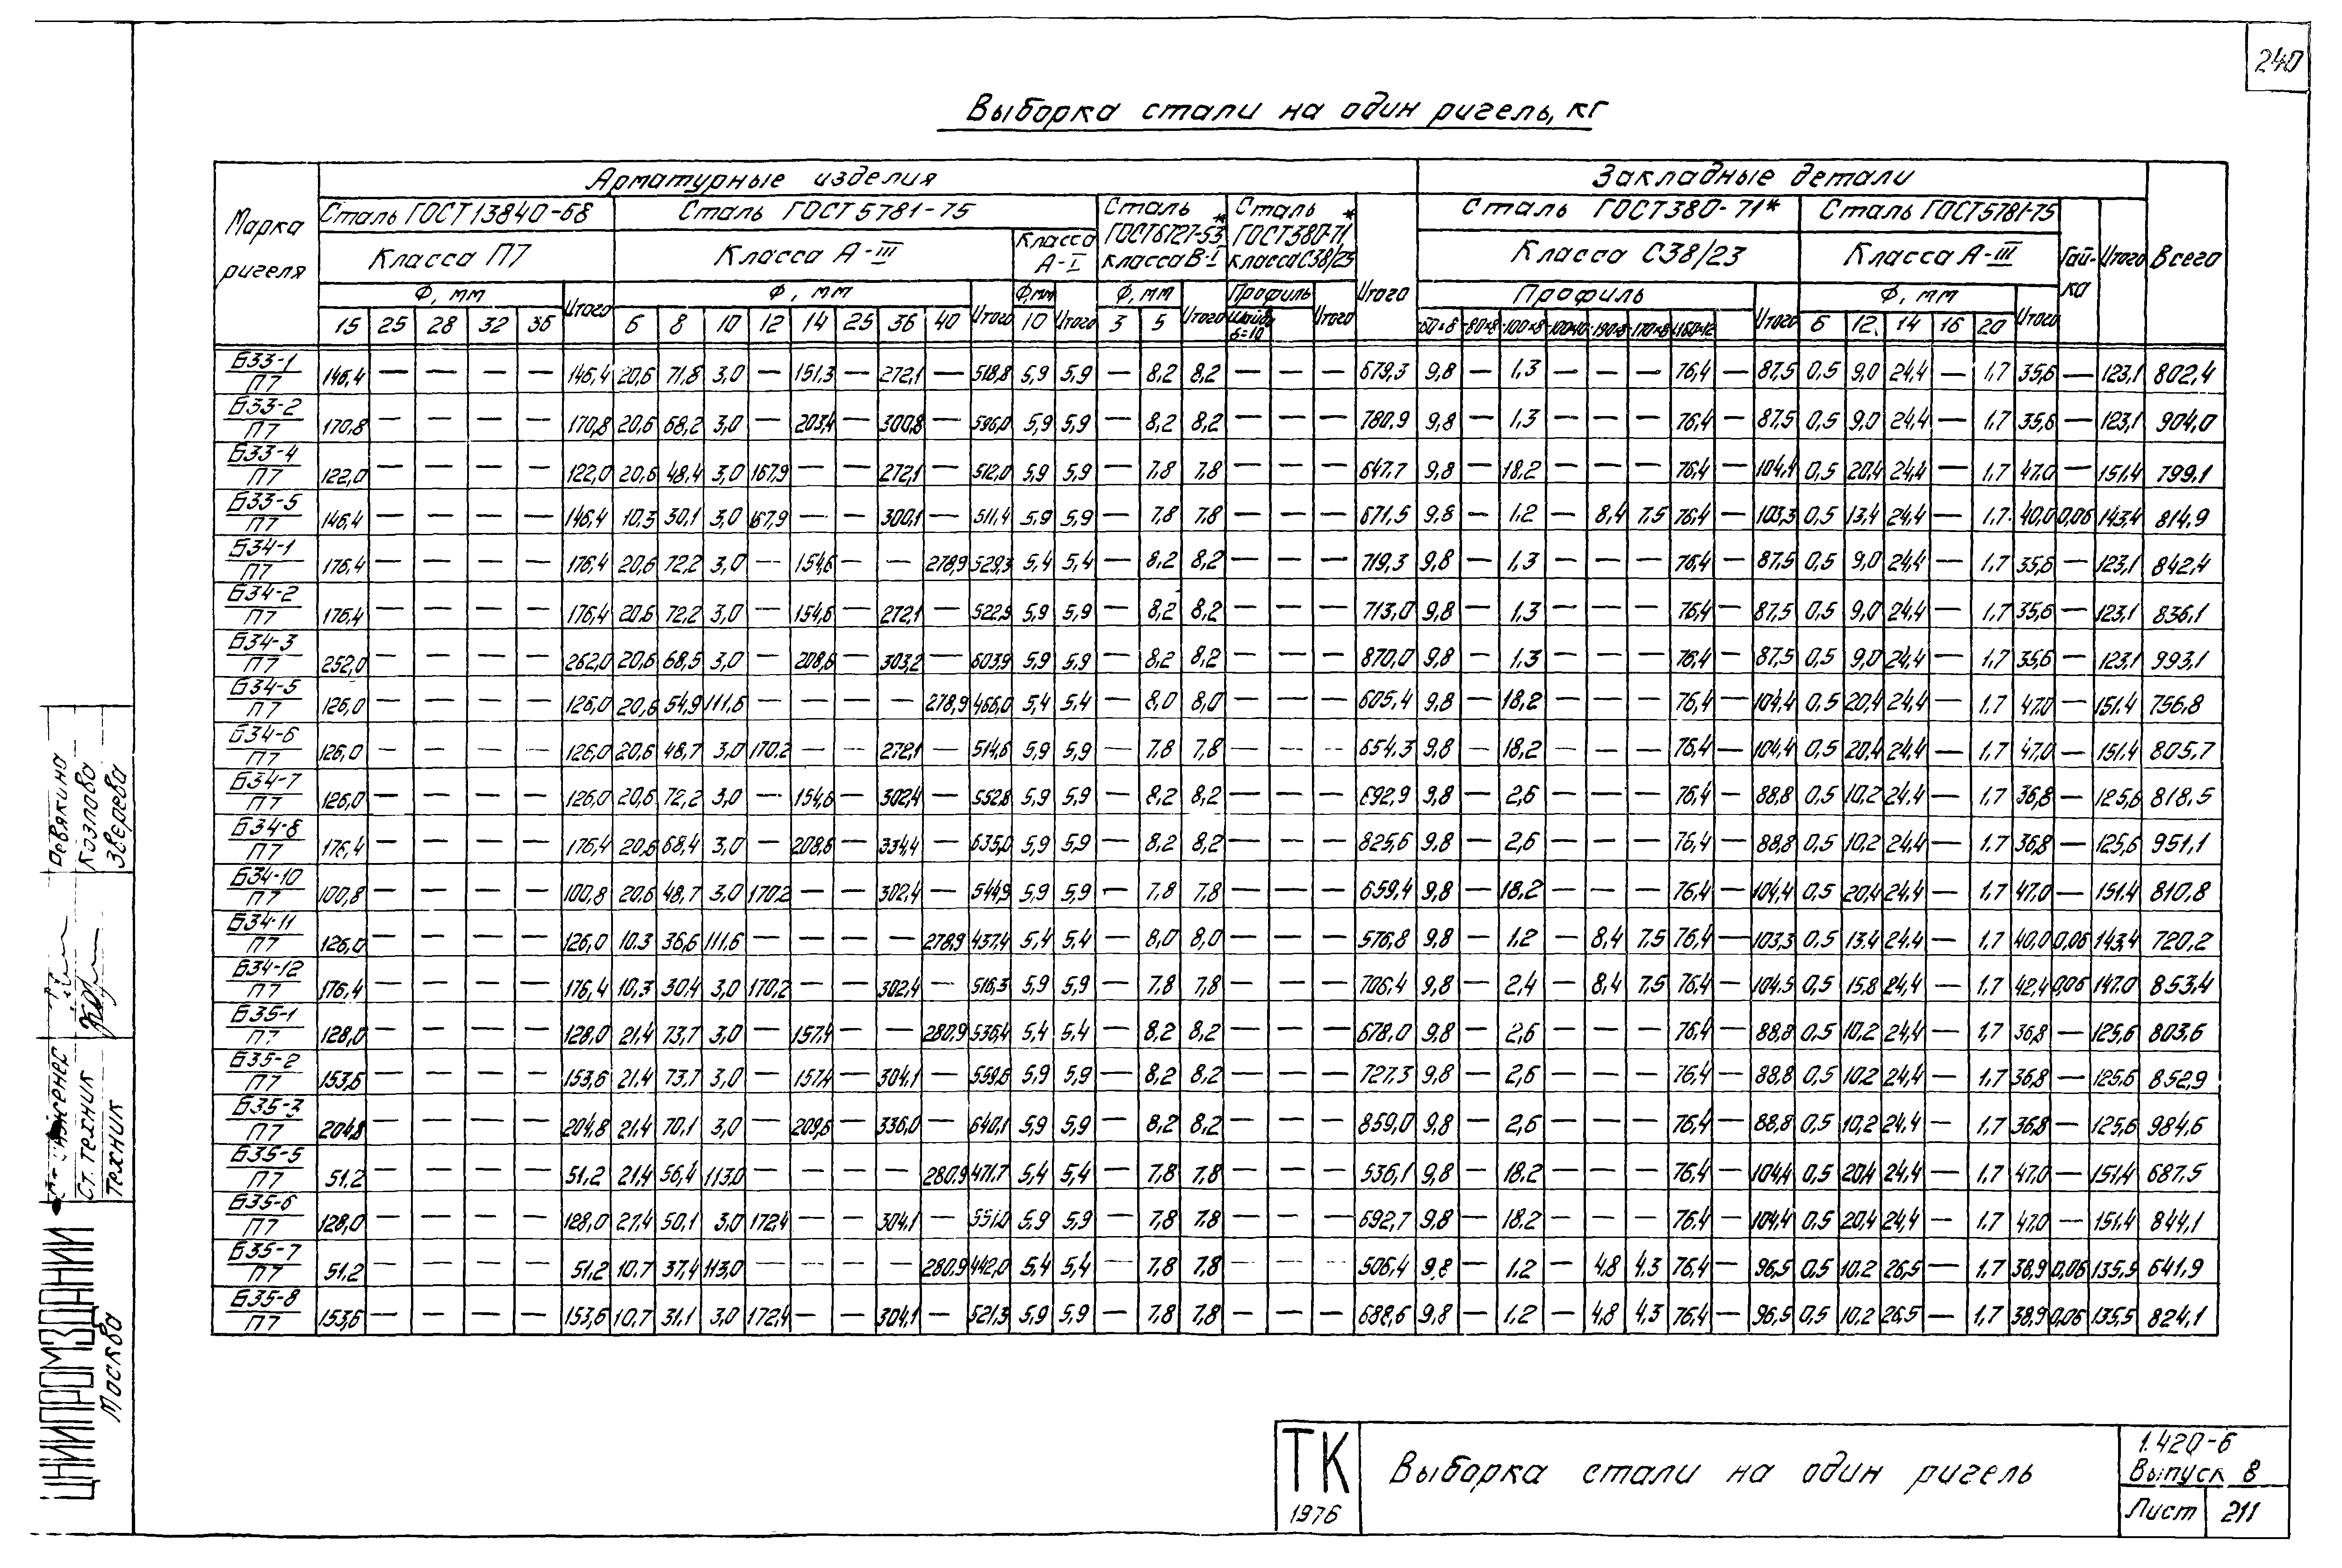 240
Выборка стали на один ригель, кг
Марка ригеля
Арматурные изделия
Закладные детали
Всего
Сталь ГОСТ 13840-68
Сталь ГОСТ 5781-75
Сталь ГОСТ 6727-53* класса В-I
Сталь ГОСТ 380-71* класса С38/23
Итого
Сталь ГОСТ 380-71*
Сталь ГОСТ 5781-75
Гайка
Итого
Класса П7
Класса А-III
Класса А-I
Класса С38/23
Класса А-III
Ф, мм
Итого
Ф, мм
Итого
Ф, мм
Итого
Ф, мм
Итого
Профиль
Итого
Профиль
Итого
Ф, мм
Итого
15 25 28 32 36 6 8 10 12 14 25 36 40 10 3 5 -60×8 -80×8 -100×8 -100×10 -190×8 -170×8 6 12 14 16 20
Б33-1/П7 146,4 — — — — 146,4 20,6 71,8 3,0 — 151,3 — 272,1 — 518,8 5,9 5,9 — 8,2 8,2 — — — 679,3 9,8 — 1,3 — — — 76,4 — 87,5 0,5 9,0 24,4 — 1,7 35,6 — 123,1 802,4
Б33-2/П7 170,8 — — — — 170,8 20,6 68,2 3,0 — 203,4 — 300,8 — 596,0 5,9 5,9 — 8,2 8,2 — — — 780,9 9,8 — 1,3 — — — 76,4 — 87,5 0,5 9,0 24,4 — 1,7 35,6 — 123,1 904,0
Б33-4/П7 122,0 — — — — 122,0 20,6 48,4 3,0 167,9 — — 272,1 — 512,0 5,9 5,9 — 7,8 7,8 — — — 647,7 9,8 — 18,2 — — — 76,4 — 104,4 0,5 20,4 24,4 — 1,7 47,0 — 151,4 799,1
Б33-5/П7 146,4 — — — — 146,4 10,3 30,1 3,0 167,9 — — 300,1 — 511,4 5,9 5,9 — 7,8 7,8 — — — 671,5 9,8 — 1,2 — 8,4 7,5 76,4 — 103,3 0,5 13,4 24,4 — 1,7 40,0 0,06 143,4 814,9
Б34-1/П7 176,4 — — — — 176,4 20,6 72,2 3,0 — 154,6 — — 278,9 529,3 5,4 5,4 — 8,2 8,2 — — — 719,3 9,8 — 1,3 — — — 76,4 — 87,5 0,5 9,0 24,4 — 1,7 35,6 — 123,1 842,4
Б34-2/П7 176,4 — — — — 176,4 20,6 72,2 3,0 — 154,6 — 272,1 — 522,5 5,9 5,9 — 8,2 8,2 — — — 713,0 9,8 — 1,3 — — — 76,4 — 87,5 0,5 9,0 24,4 — 1,7 35,6 — 123,1 836,1
Б34-3/П7 252,0 — — — — 262,0 20,6 68,5 3,0 — 208,6 — 303,2 — 603,9 5,9 5,9 — 8,2 8,2 — — — 870,0 9,8 — 1,3 — — — 76,4 — 87,5 0,5 9,0 24,4 — 1,7 35,6 — 123,1 993,1
Б34-5/П7 126,0 — — — — 126,0 20,6 54,9 111,6 — — — — 278,9 466,0 5,4 5,4 — 8,0 8,0 — — — 605,4 9,8 — 18,2 — — — 76,4 — 104,4 0,5 20,4 24,4 — 1,7 47,0 — 151,4 756,8
Б34-6/П7 126,0 — — — — 126,0 20,6 48,7 3,0 170,2 — — 272,1 — 514,6 5,9 5,9 — 7,8 7,8 — — — 654,3 9,8 — 18,2 — — — 76,4 — 104,4 0,5 20,4 24,4 — 1,7 47,0 — 151,4 805,7
Б34-7/П7 126,0 — — — — 126,0 20,6 72,2 3,0 — 154,6 — 302,4 — 552,8 5,9 5,9 — 8,2 8,2 — — — 692,9 9,8 — 2,6 — — — 76,4 — 88,8 0,5 10,2 24,4 — 1,7 36,8 — 125,6 818,5
Б34-8/П7 176,4 — — — — 176,4 20,6 68,4 3,0 — 208,6 — 334,4 — 635,0 5,9 5,9 — 8,2 8,2 — — — 825,6 9,8 — 2,6 — — — 76,4 — 88,8 0,5 10,2 24,4 — 1,7 36,8 — 125,6 951,1
Б34-10/П7 100,8 — — — — 100,8 20,6 48,7 3,0 170,2 — — 302,4 — 544,9 5,9 5,9 — 7,8 7,8 — — — 659,4 9,8 — 18,2 — — — 76,4 — 104,4 0,5 20,4 24,4 — 1,7 47,0 — 151,4 810,8
Б34-11/П7 126,0 — — — — 126,0 10,3 36,6 111,6 — — — — 278,9 437,4 5,4 5,4 — 8,0 8,0 — — — 576,8 9,8 — 1,2 — 8,4 7,5 76,4 — 103,3 0,5 13,4 24,4 — 1,7 40,0 0,06 143,4 720,2
Б34-12/П7 176,4 — — — — 176,4 10,3 30,4 3,0 170,2 — — 302,4 — 516,3 5,9 5,9 — 7,8 7,8 — — — 706,4 9,8 — 2,4 — 8,4 7,5 76,4 — 104,5 0,5 15,8 24,4 — 1,7 42,4 0,06 147,0 853,4
Б35-1/П7 128,0 — — — — 128,0 21,4 73,7 3,0 — 157,4 — — 280,9 536,4 5,4 5,4 — 8,2 8,2 — — — 678,0 9,8 — 2,6 — — — 76,4 — 88,8 0,5 10,2 24,4 — 1,7 36,8 — 125,6 803,6
Б35-2/П7 153,6 — — — — 153,6 21,4 73,7 3,0 — 157,4 — 304,1 — 559,6 5,9 5,9 — 8,2 8,2 — — — 727,3 9,8 — 2,6 — — — 76,4 — 88,8 0,5 10,2 24,4 — 1,7 36,8 — 125,6 852,9
Б35-3/П7 204,8 — — — — 204,8 21,4 70,1 3,0 — 209,6 — 336,0 — 640,1 5,9 5,9 — 8,2 8,2 — — — 859,0 9,8 — 2,6 — — — 76,4 — 88,8 0,5 10,2 24,4 — 1,7 36,8 — 125,6 984,6
Б35-5/П7 51,2 — — — — 51,2 21,4 56,4 113,0 — — — — 280,9 471,7 5,4 5,4 — 7,8 7,8 — — — 536,1 9,8 — 18,2 — — — 76,4 — 104,4 0,5 20,4 24,4 — 1,7 47,0 — 151,4 687,5
Б35-6/П7 128,0 — — — — 128,0 21,4 50,1 3,0 172,4 — — 304,1 — 551,0 5,9 5,9 — 7,8 7,8 — — — 692,7 9,8 — 18,2 — — — 76,4 — 104,4 0,5 20,4 24,4 — 1,7 47,0 — 151,4 844,1
Б35-7/П7 51,2 — — — — 51,2 10,7 37,4 113,0 — — — — 280,9 442,0 5,4 5,4 — 7,8 7,8 — — — 506,4 9,8 — 1,2 — 4,8 4,3 76,4 — 96,5 0,5 10,2 26,5 — 1,7 38,9 0,06 135,5 641,9
Б35-8/П7 153,6 — — — — 153,6 10,7 31,1 3,0 172,4 — — 304,1 — 521,3 5,9 5,9 — 7,8 7,8 — — — 688,6 9,8 — 1,2 — 4,8 4,3 76,4 — 96,5 0,5 10,2 26,5 — 1,7 38,9 0,06 135,5 824,1
Ревякина
Козлова
Зверева
Ст. техник
Техник
ЦНИИПРОМЗДАНИЙ
Москва
ТК
1976
Выборка стали на один ригель
1.420-6
Выпуск 8
Лист 211